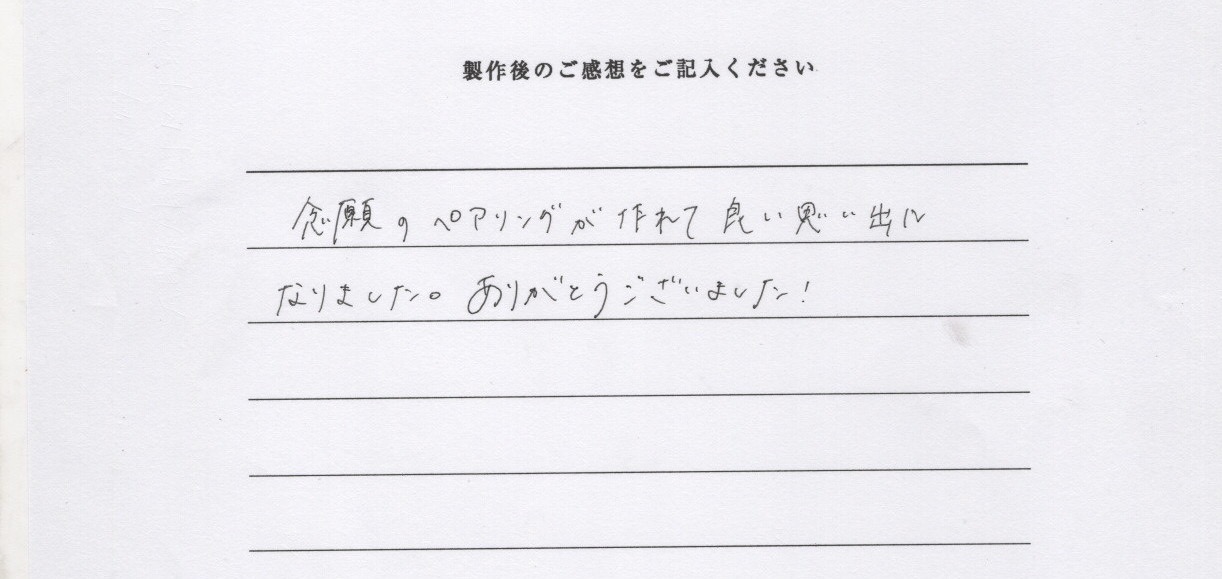 製作後のご感想をご記入ください
念願のペアリングが作れて良い思い出に
なりました。ありがとうございました!